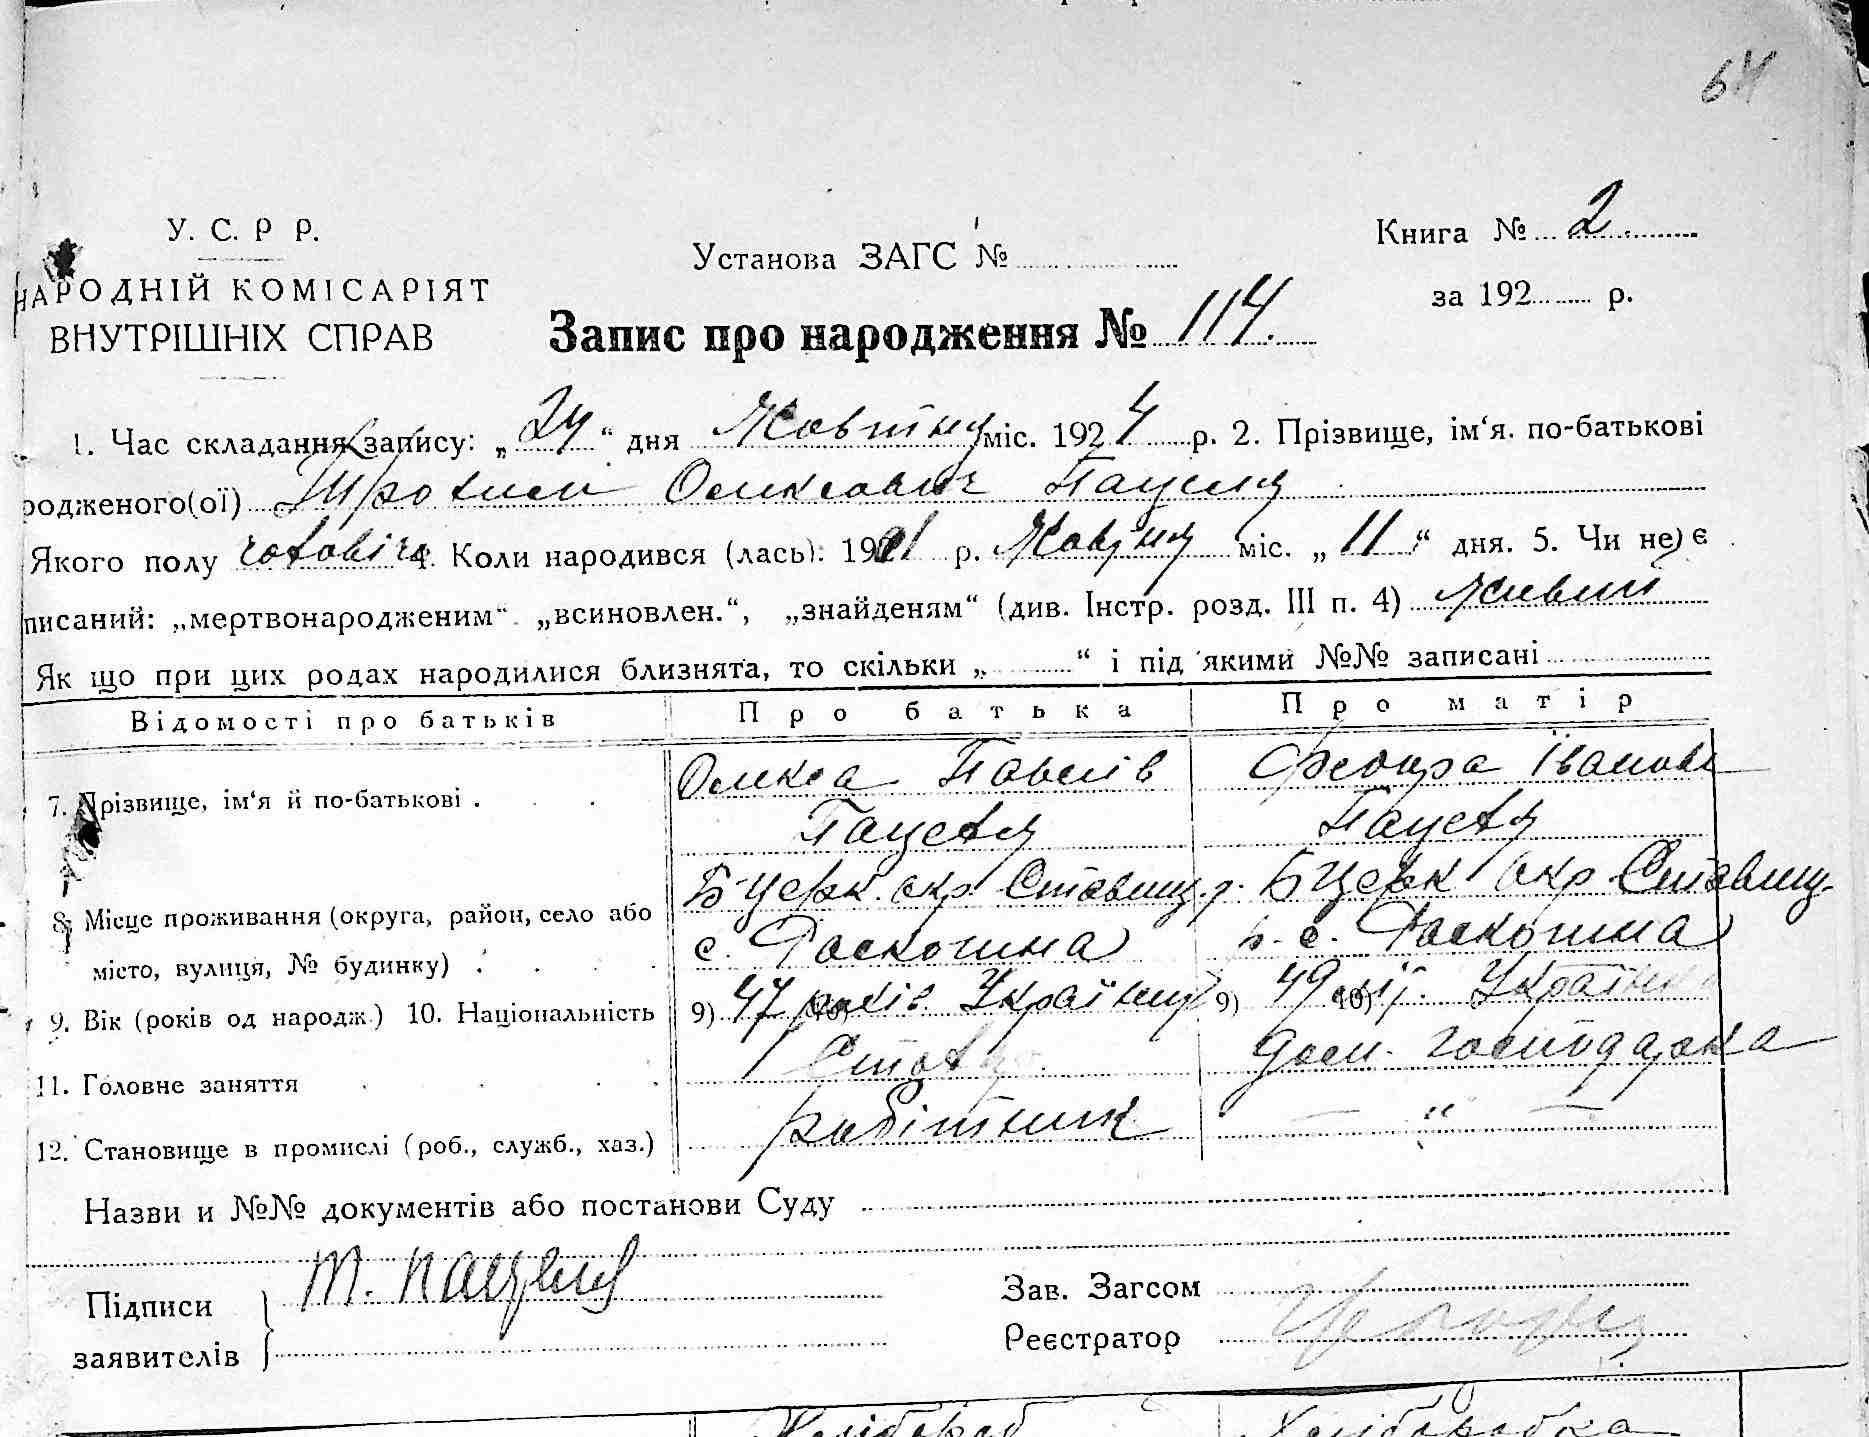 64
У. С. Р Р.
НАРОДНІЙ КОМІСАРІЯТ
ВНУТРІШНІХ СПРАВ
Установа ЗАГС №
Книга № 2.
за 192 р.
Запис про народження № 114.
1. Час складання запису: „24“ дня Жовтня міс. 1924 р. 2. Прізвище, ім‘я. по-батькові
родженого(ої) Олексович Пацеля
Якого полу чоловіч 4. Коли народився (лась): 19 р. міс. „11“ дня. 5. Чи не) є
писаний: „мертвонародженим“ „всиновлен.“, „знайденям“ (див. Інстр. розд. III п. 4) Живий
Як що при цих родах народилися близнята, то скільки „ “ і під якими №№ записані
Відомості про батьків Про батька Про матір
7. Прізвище, ім‘я й по-батькові . Олекса Павлів Феодра Іванов
Пацеля Пацеля
8. Місце проживання (округа, район, село або Б-Церк. окр Ставищ. р. Б Церк окр Ставищ.
місто, вулиця, № будинку) . с. Роскошна р. с. Роскошна
9. Вік (років од народж.) 10. Національність 9) 47 років 10) Українець 9) 49 10) Українка
11. Головне заняття Столяр Дом. господарка
12. Становище в промислі (роб., служб., хаз.) робітник — “ —
Назви и №№ документів або постанови Суду
Підписи
заявителів
Т. Пацеля
Зав. Загсом
Реєстратор
Хлібороб Хліборобка